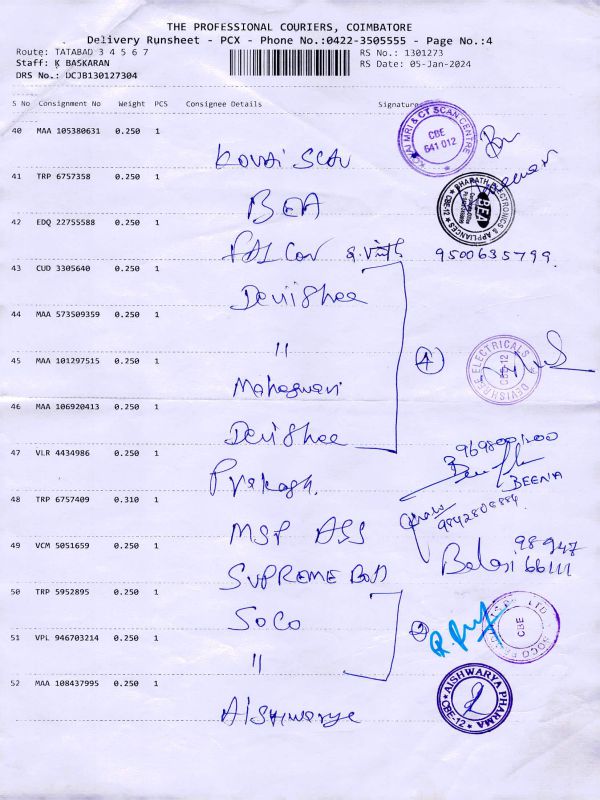 THE PROFESSIONAL COURIERS, COIMBATORE
Delivery Runsheet - PCX - Phone No.:0422-3505555 - Page No.:4
Route: TATABAD 3 4 5 6 7
RS No.: 1301273
Staff: K BASKARAN
RS Date: 05-Jan-2024
DRS No.: DCJB130127304
S No Consignment No Weight PCS Consignee Details Signature
40 MAA 105380631 0.250 1
KOVAI SCAN
KOVAI MRI & CT SCAN CENTRE
CBE
641 012
41 TRP 6757358 0.250 1
BEA
BHARATH ELECTRONICS & APPLIANCES
BEA
CBE-12
42 EDQ 22755588 0.250 1
FALCON
9500635799
43 CUD 3305640 0.250 1
Devishree
44 MAA 573509359 0.250 1
"
4
DEVISHREE ELECTRICALS
CBE-12
45 MAA 101297515 0.250 1
Maheswari
46 MAA 106920413 0.250 1
Devishree
47 VLR 4434986 0.250 1
Prakash
9698001200
BEENA
48 TRP 6757409 0.310 1
MSP ASS
49 VCM 5051659 0.250 1
SUPREME
Balaji 98947
66111
50 TRP 5952895 0.250 1
SOCO
2
CBE
51 VPL 946703214 0.250 1
"
52 MAA 108437995 0.250 1
Aishwarya
AISHWARYA PHARMA
CBE-12